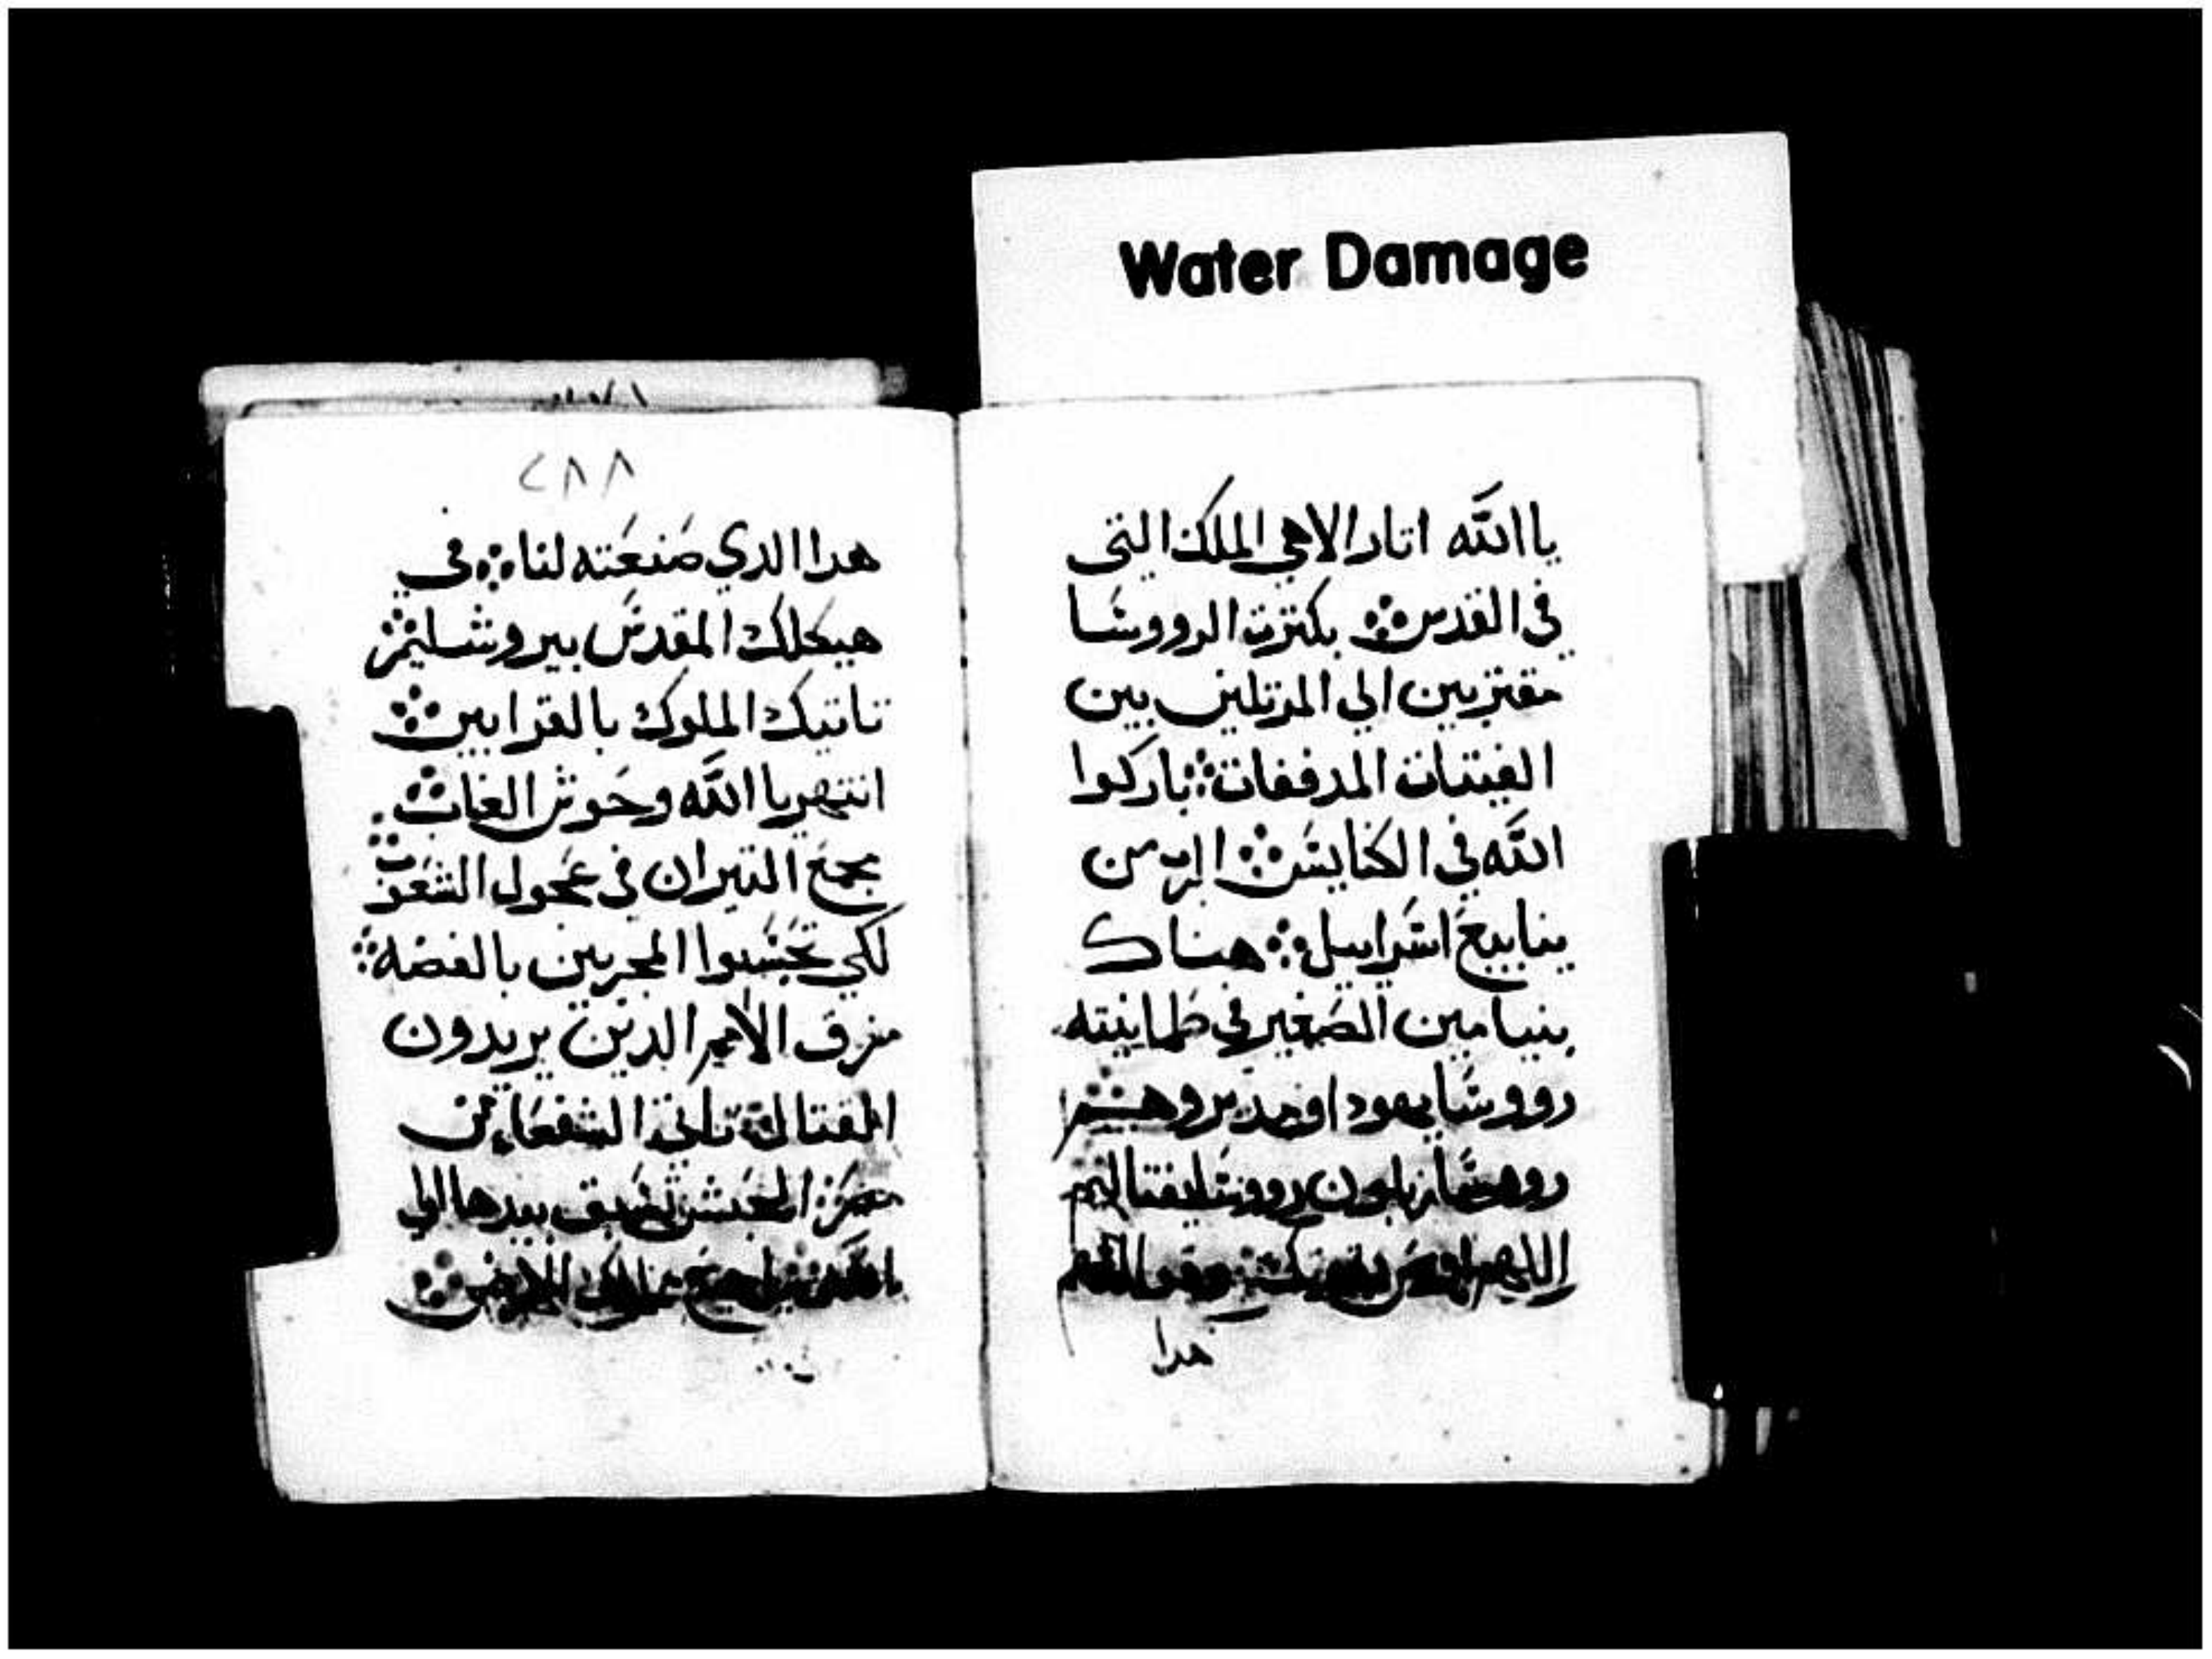 Water Damage
يا الله اتار الاهي الملك التى
في القدس ܀ بكترت الرووسا
مقتربين الي المرتلين بين
الفتيات المدففات ܀ باركوا
الله في الكنايس ܀ الرب من
ينابيع اسراييل ܀ هناك
بنيامين الصغير في طمانينته
رووسا يهودا ومدبروهم
زبلون رووسا نفتاليم
اللهم
هدا
٢٨٨
هدا الدي صنعته لنا ܀ في
هيكلك المقدس بيروشليم ܀
تاتيك الملوك بالقرابين ܀
انتهر يا الله وحوش الغاب ܀
مجمع التيران في عجول الشعوب ܀
لكي تحبسوا المجربين بالفضه ܀
مزق الامم الدين يريدون
القتال ܀ تاتي الشفعاء من
مصر الحبش تسبق بيدها الي
الله ܀ يا جميع ممالك الارض ܀